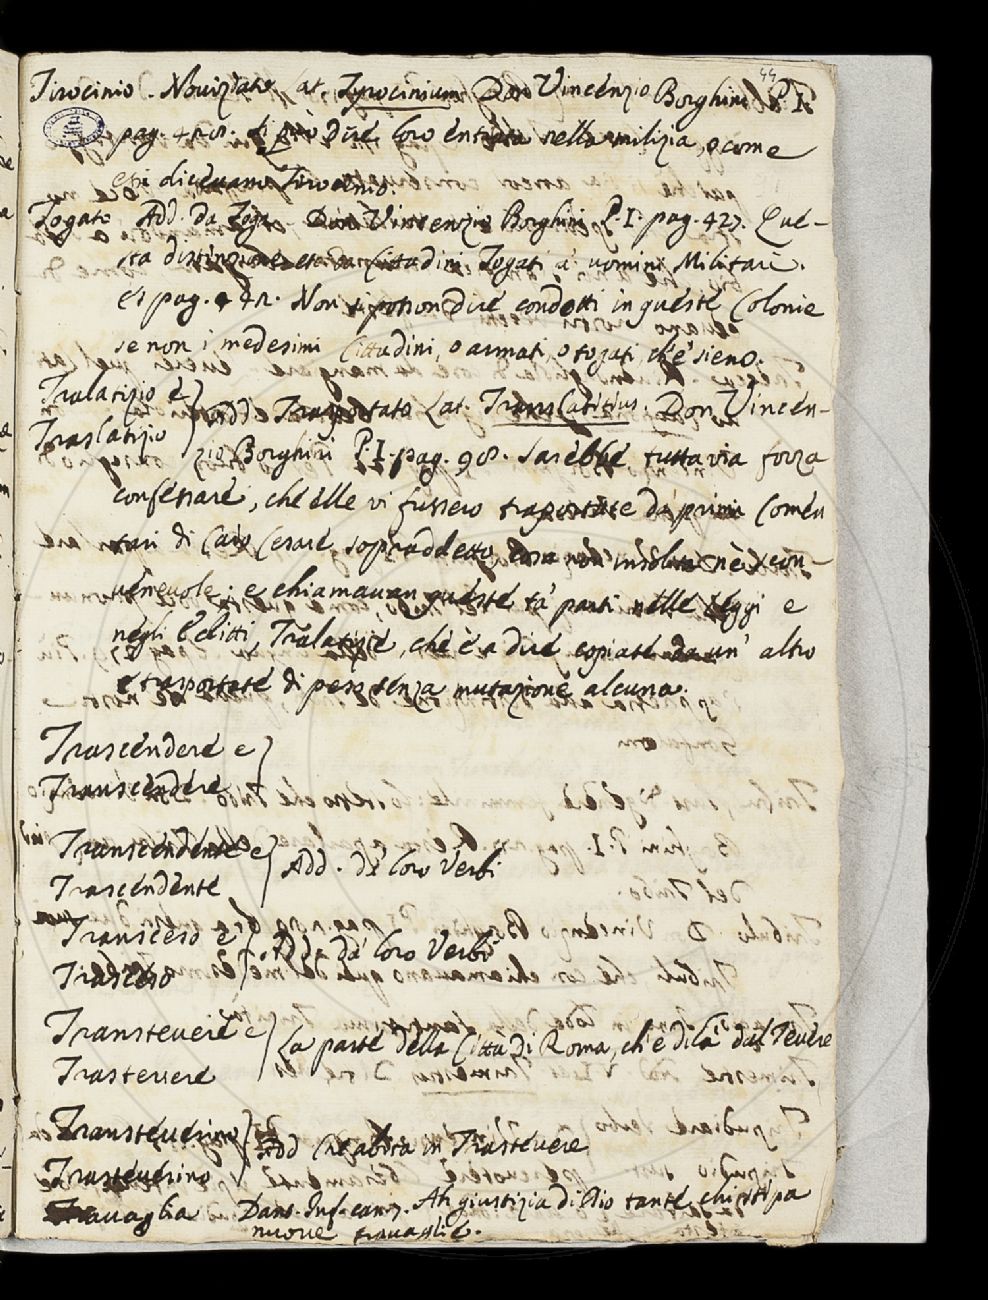 44
Tirocinio. Noviziato Lat. Tyrocinium Don Vincenzio Borghini P. I.
pag. 428. di più dire loro entrata nella milizia, o come
essi dicevano Tirocinio.
Togato Add. da Toga Don Vincenzio Borghini P. I. pag. 427. Que-
sta distinzione era da Cittadini Togati a uomini Militari.
Et pag. 42. Non si potson dire condotti in queste Colonie
se non i medesimi Cittadini, o armati, o togati ch'è sieno.
Tralatizio è
Add. Trasportato Lat. Translatitius. Don Vincen-
Traslatizio
zio Borghini P. I. pag. 98. Sarebbe tuttavia forza
confessare, che elle vi fussero trasportate da' primi Comen
tari di Caio Cesare sopraddetto cosa non insolita nè scon-
venevole, e chiamavan queste ta' parti nelle leggi e
negli Editti, Tralatizie, che è a dire copiate da un' altro
e trasportate di peso senza mutazione alcuna.
Trascendere e
Transcendere
Transcendente e
Add. de loro Verbi
Trascendente
Transceso e
Add. da' loro Verbi
Trasceso
Transtevere e
La parte della Città di Roma, ch'è di là dal Tevere
Trastevere
Transteverino
Add Che abita in Trastevere
Trasteverino
Travaglia Dant. Inf. can. 7. Ah giustizia di Dio tante chi stipa
nuove travaglie.